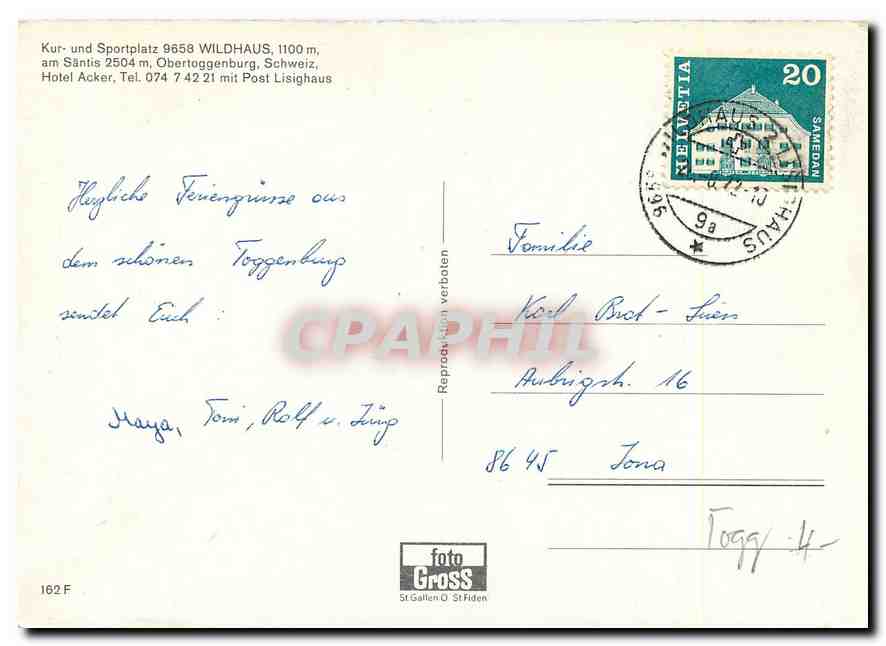 Kur- und Sportplatz 9658 WILDHAUS, 1100 m,
am Säntis 2504 m, Obertoggenburg, Schweiz,
Hotel Acker, Tel. 074 7 42 21 mit Post Lisighaus
HELVETIA
20
SAMEDAN
9658 WILDHAUS 2 LISIGHAUS
9a
Herzliche Feriengrüsse aus
dem schönen Toggenburg
sendet Euch :
Maya, Toni, Rolf u. Jürg
Reproduktion verboten
Familie
Karl Brot -
Aubrigstr. 16
8645 Jona
CPAPHIL
Togg 4-
foto
GROSS
St Gallen O St Fiden
162 F